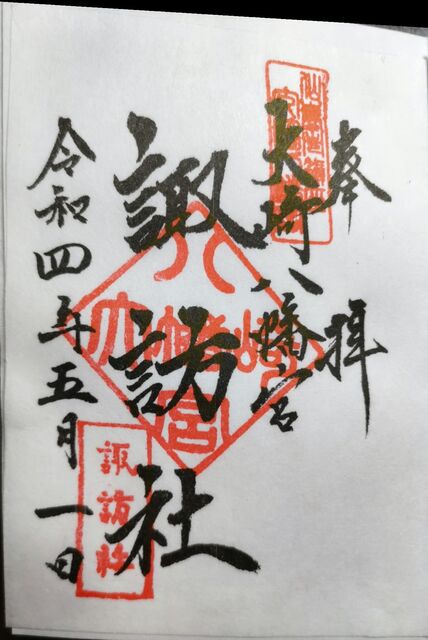 奉拝
大崎八幡宮
諏訪社
令和四年五月一日
八幡宮
大崎
諏訪社